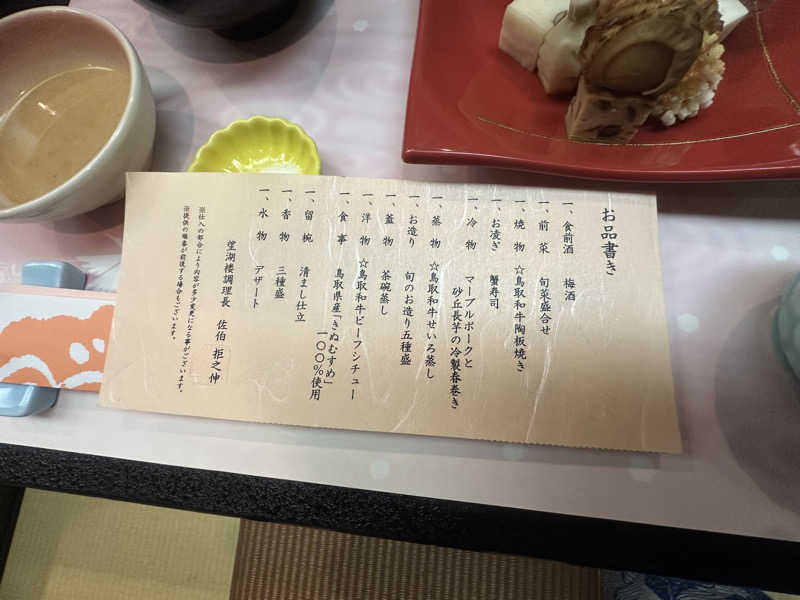 お品書き
一、食前酒　梅酒
一、前　菜　旬菜盛合せ
一、焼　物　☆鳥取和牛陶板焼き
一、お凌ぎ　蟹寿司
一、冷　物　マーブルポークと
砂丘長芋の冷製春巻き
一、蒸　物　☆鳥取和牛せいろ蒸し
一、お造り　旬のお造り五種盛
一、蓋　物　茶碗蒸し
一、洋　物　☆鳥取和牛ビーフシチュー
一、食　事　鳥取県産「きぬむすめ」
一〇〇％使用
一、留　椀　清まし仕立
一、香　物　三種盛
一、水　物　デザート
望湖楼調理長　佐伯　拒之伸
※仕入の都合により内容が多少変更になる事がございます。
※提供の順番が前後する場合もございます。